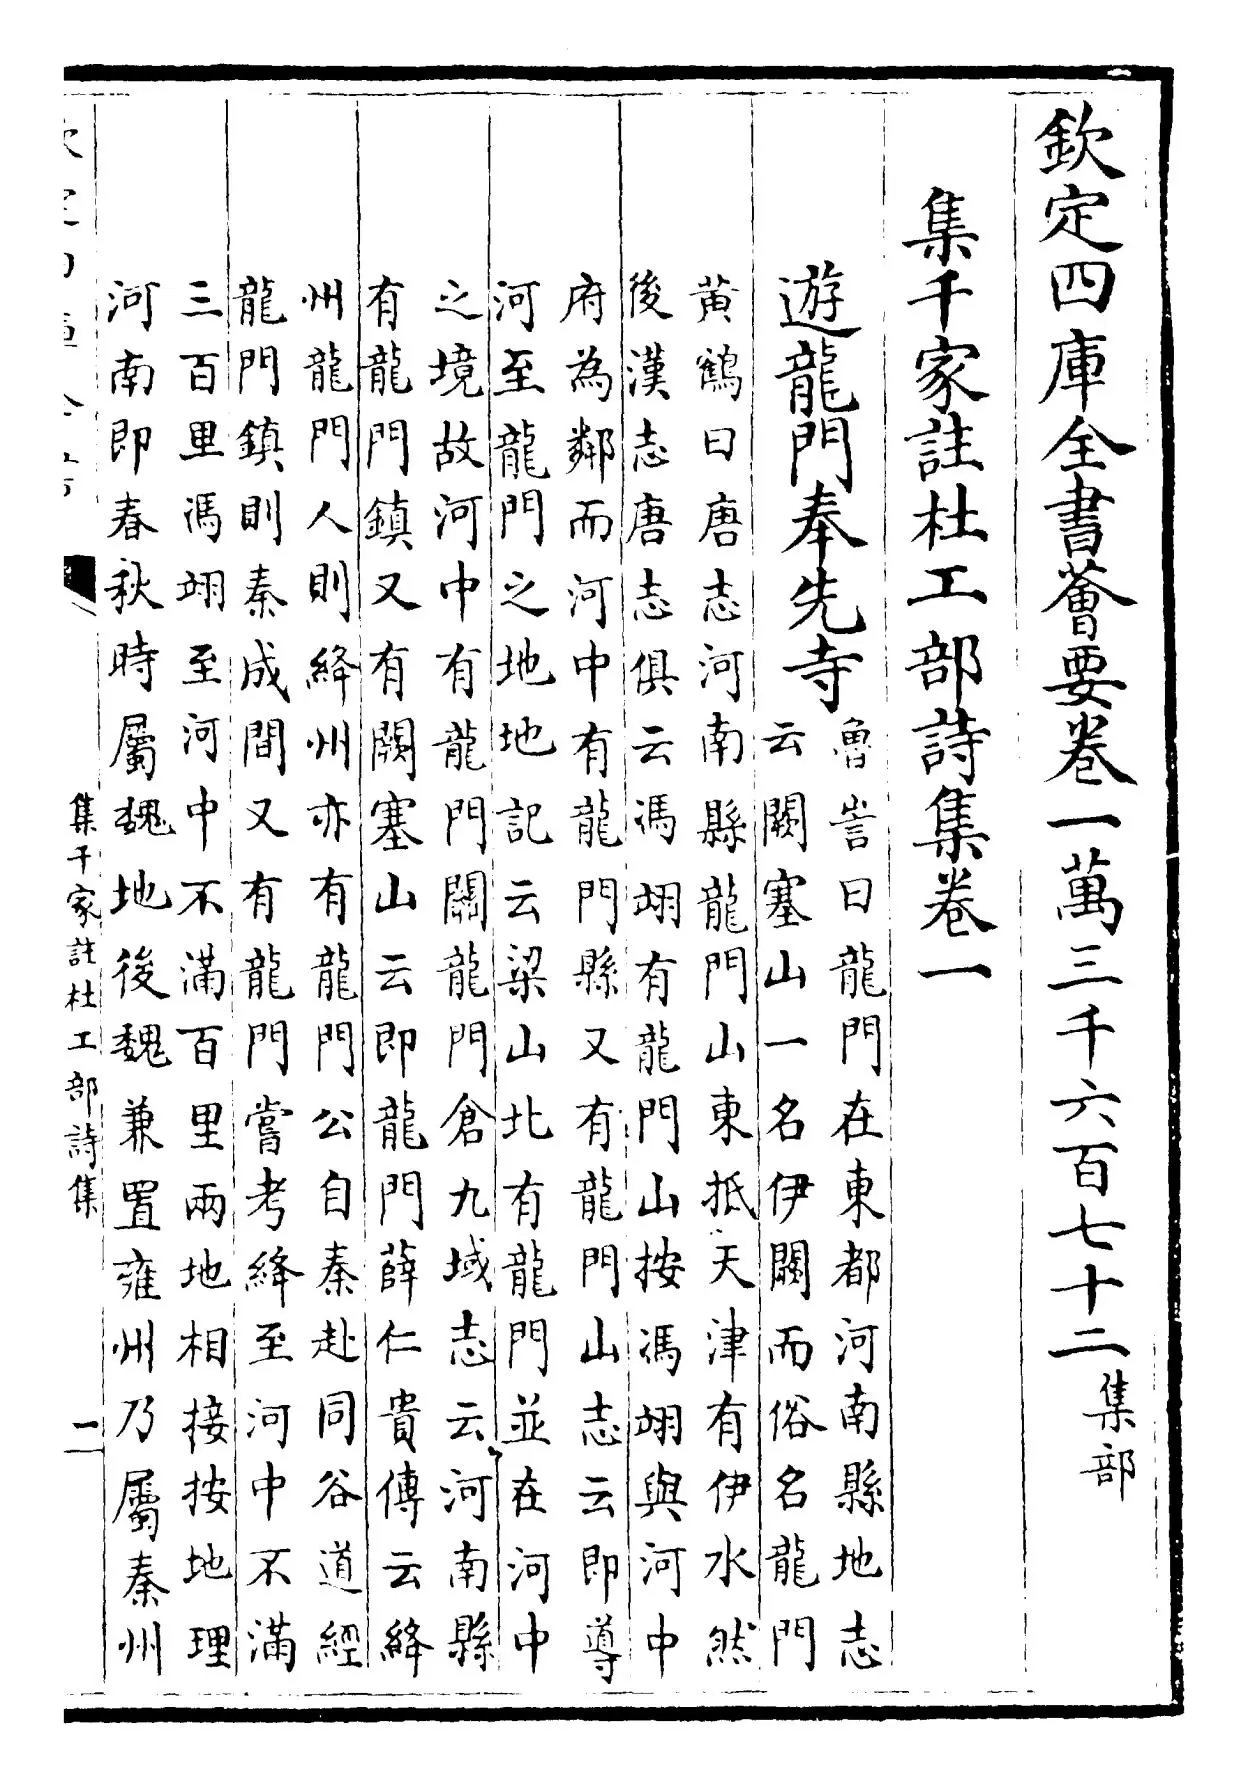 欽定四庫全書薈要卷一萬三千六百七十二集部
集千家註杜工部詩集卷一
遊龍門奉先寺
魯訔曰龍門在東都河南縣地志
云闕塞山一名伊闕而俗名龍門
黃鶴曰唐志河南縣龍門山東抵天津有伊水然
後漢志唐志俱云馮翊有龍門山按馮翊與河中
府為鄰而河中有龍門縣又有龍門山志云即導
河至龍門之地地記云梁山北有龍門並在河中
之境故河中有龍門關龍門倉九域志云河南縣
有龍門鎮又有闕塞山云即龍門薛仁貴傳云絳
州龍門人則絳州亦有龍門公自秦赴同谷道經
龍門鎮則秦成間又有龍門嘗考絳至河中不滿
三百里馮翊至河中不滿百里兩地相接按地理
河南即春秋時屬魏地後魏兼置雍州乃屬秦州
集千家註杜工部詩集
一